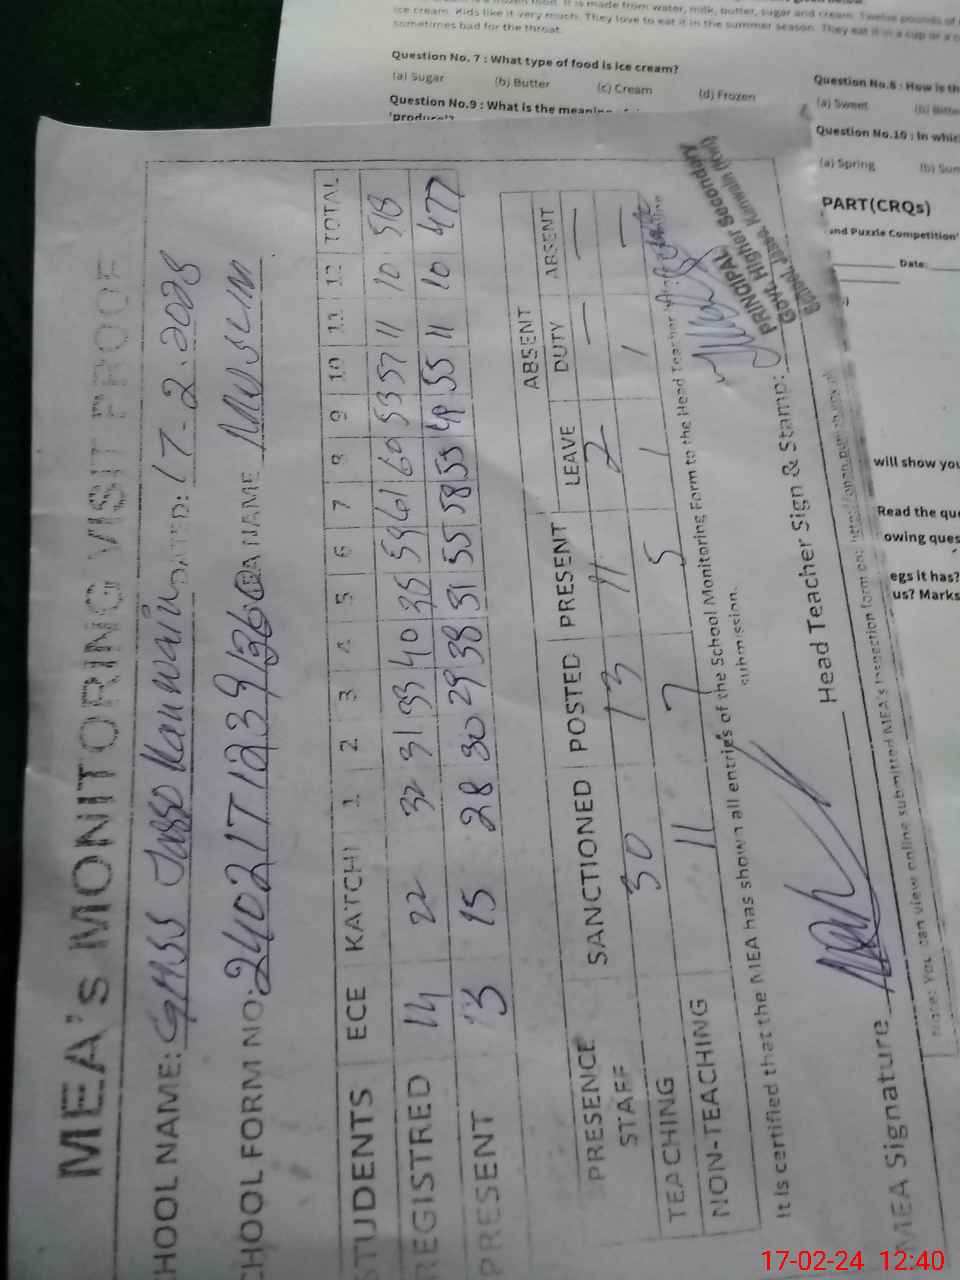 ice cream. Kids like it very much. They love to eat it in the summer season. They eat it in a cup or a
sometimes bad for the throat.
Question No. 7 : What type of food is ice cream?
(a) Sugar (b) Butter (c) Cream (d) Frozen
Question No.8 : How is th
(a) Sweet (b) Bitte
Question No.9 : What is the meaning
'produce'?
Question No.10 : In whic
(a) Spring (b) Sum
PART(CRQs)
and Puzzle Competition'
Date:
will show you
Read the que
owing ques
egs it has?
us? Marks
MEA's MONITORING VISIT PROOF
HOOL NAME: GHSS Jabbo Kanwain DATED: 17-2-2024
CHOOL FORM NO: NAME Muslim
STUDENTS ECE KATCHI 1 2 3 4 5 6 7 8 9 10 11 12 TOTAL
REGISTRED 14 22 32 31 33 40 35 59 61 60 53 57 11 10 518
PRESENT 13 15 28 30 29 38 31 55 58 55 49 55 11 10 477
PRESENCE SANCTIONED POSTED PRESENT LEAVE ABSENT DUTY ABSENT
STAFF
TEACHING 30 13 11 2 — —
NON-TEACHING 11 7 5 1 1 —
It is certified that the MEA has shown all entries of the School Monitoring Form to the Head Teacher
submission.
MEA Signature Head Teacher Sign & Stamp:
PRINCIPAL
Govt. Higher Secondary
School, Jabbo, Kanwain (Kwl)
Note: You can view online submitted MEA's inspection form on:
17-02-24 12:40